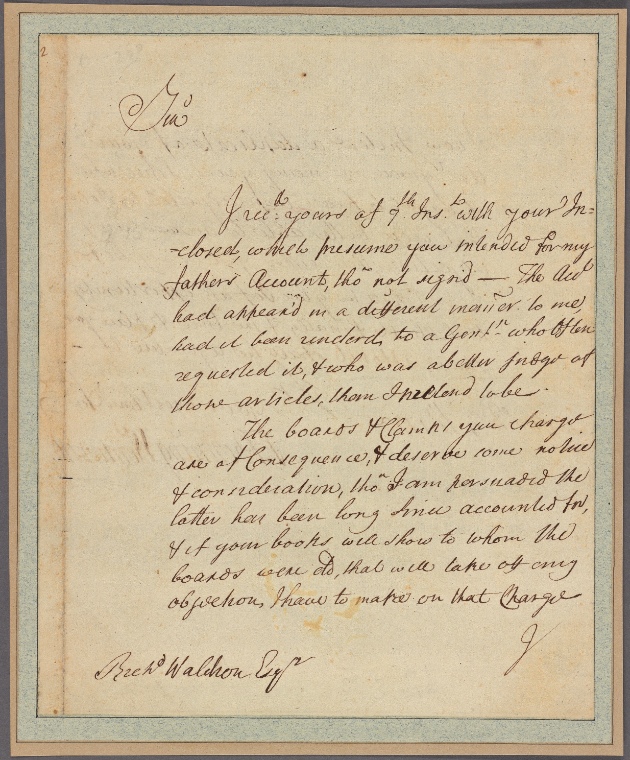 2
Sir
I rec.d yours of 7th Ins.t with your In=
-closed, which presume you intended for my
fathers Account, tho' not sign'd — The Acct
had appear'd in a different manner to me,
had it been renderd to a Gentln who Often
requested it, & who was a better Judge of
those articles, than I pretend to be.
The boards & Clams you charge
are of Consequence, & deserve some notice
& consideration, tho' I am persuaded the
latter has been long Since accounted for,
& if your books will show to whom the
boards were dd, that will take off any
objection, I have to make on that Charge
I
Richd Waldron Esqr